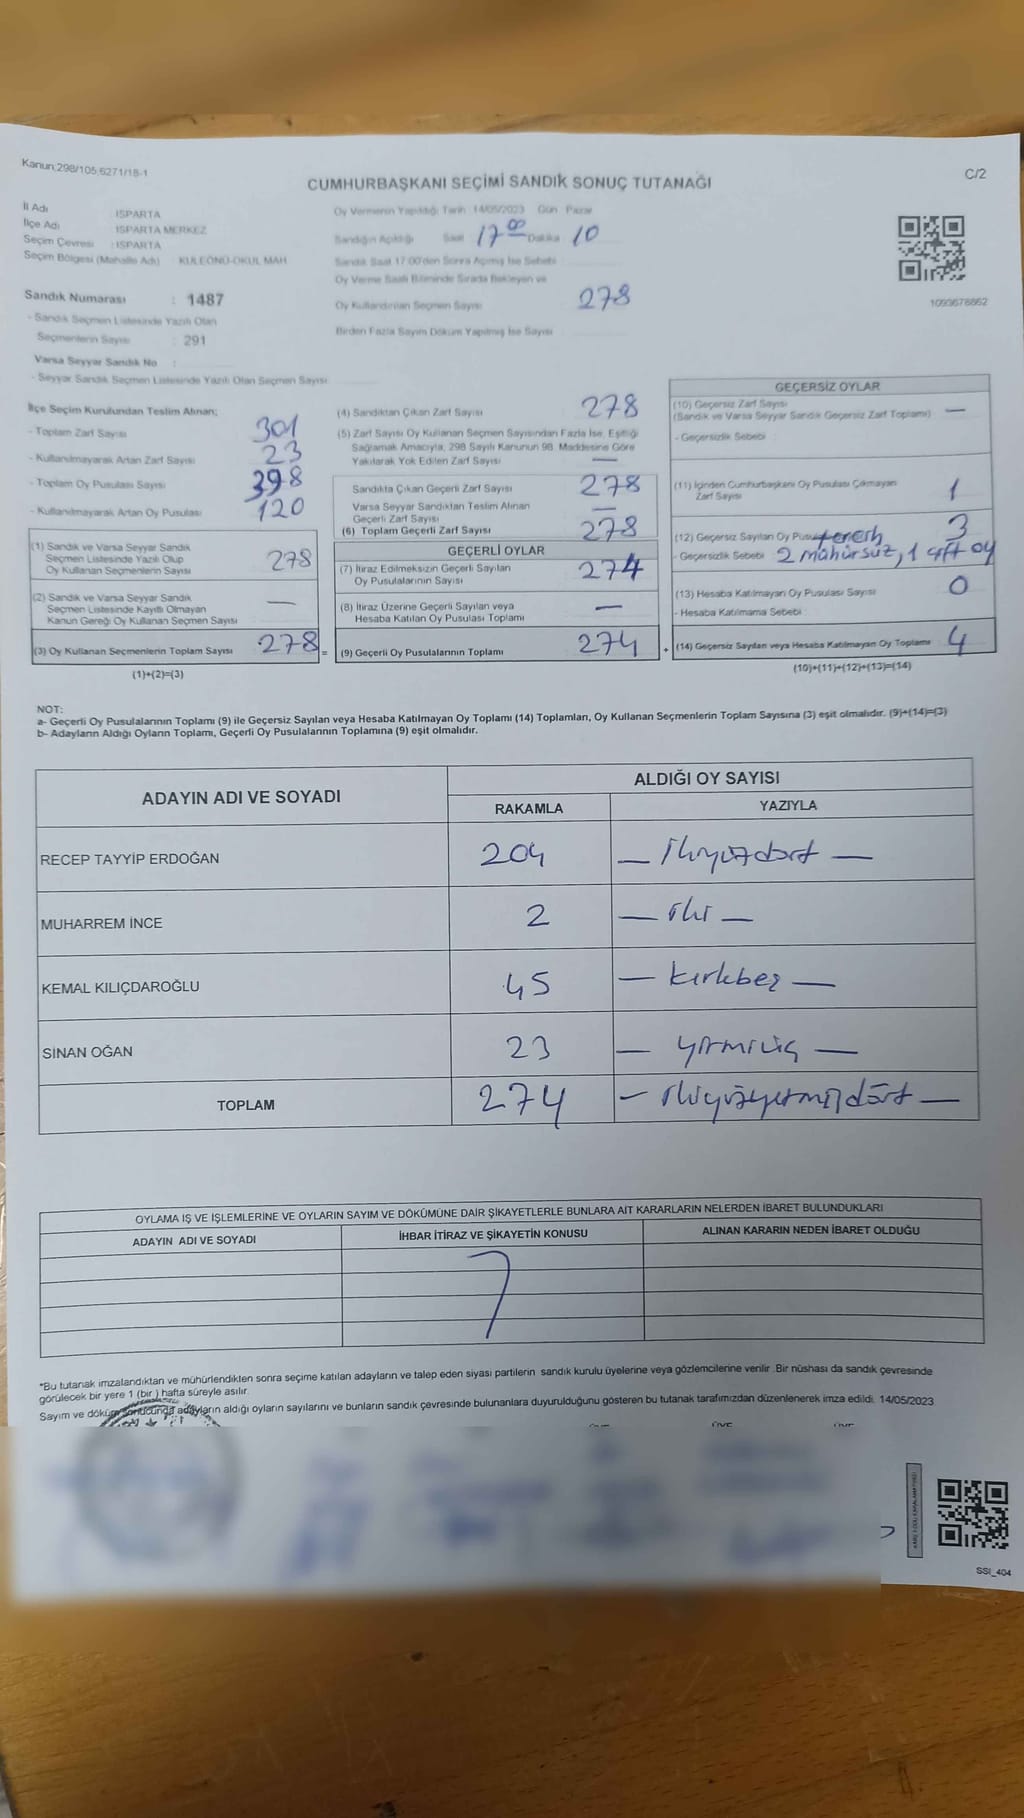 Kanun:298/105,6271/18-1
C/2
CUMHURBAŞKANI SEÇİMİ SANDIK SONUÇ TUTANAĞI
İl Adı : ISPARTA
İlçe Adı : ISPARTA MERKEZ
Seçim Çevresi : ISPARTA
Seçim Bölgesi (Mahalle Adı) : KULEÖNÜ-OKUL MAH
Sandık Numarası : 1487
- Sandık Seçmen Listesinde Yazılı Olan
Seçmenlerin Sayısı : 291
Varsa Seyyar Sandık No :
- Seyyar Sandık Seçmen Listesinde Yazılı Olan Seçmen Sayısı
Oy Vermenin Yapıldığı Tarih : 14/05/2023 Gün : Pazar
Sandığın Açıldığı Saat 17 00 Dakika 10
Sandık Saat 17:00'den Sonra Açılmış İse Sebebi
Oy Verme Saati Bitiminde Sırada Bekleyen ve
Oy Kullandırılan Seçmen Sayısı 278
Birden Fazla Sayım Döküm Yapılmış İse Sayısı
1093678862
İlçe Seçim Kurulundan Teslim Alınan;
- Toplam Zarf Sayısı 301
- Kullanılmayarak Artan Zarf Sayısı 23
- Toplam Oy Pusulası Sayısı 398
- Kullanılmayarak Artan Oy Pusulası 120
(1) Sandık ve Varsa Seyyar Sandık
Seçmen Listesinde Yazılı Olup
Oy Kullanan Seçmenlerin Sayısı 278
(2) Sandık ve Varsa Seyyar Sandık
Seçmen Listesinde Kayıtlı Olmayan
Kanun Gereği Oy Kullanan Seçmen Sayısı —
(3) Oy Kullanan Seçmenlerin Toplam Sayısı 278 =
(1)+(2)=(3)
(4) Sandıktan Çıkan Zarf Sayısı 278
(5) Zarf Sayısı Oy Kullanan Seçmen Sayısından Fazla İse, Eşitliği
Sağlamak Amacıyla; 298 Sayılı Kanunun 98. Maddesine Göre
Yakılarak Yok Edilen Zarf Sayısı —
Sandıkta Çıkan Geçerli Zarf Sayısı 278
Varsa Seyyar Sandıktan Teslim Alınan
Geçerli Zarf Sayısı —
(6) Toplam Geçerli Zarf Sayısı 278
GEÇERLİ OYLAR
(7) İtiraz Edilmeksizin Geçerli Sayılan
Oy Pusulalarının Sayısı 274
(8) İtiraz Üzerine Geçerli Sayılan veya
Hesaba Katılan Oy Pusulası Toplamı —
(9) Geçerli Oy Pusulalarının Toplamı 274 +
GEÇERSİZ OYLAR
(10) Geçersiz Zarf Sayısı
(Sandık ve Varsa Seyyar Sandık Geçersiz Zarf Toplamı) —
- Geçersizlik Sebebi :
(11) İçinden Cumhurbaşkanı Oy Pusulası Çıkmayan
Zarf Sayısı 1
(12) Geçersiz Sayılan Oy 3
- Geçersizlik Sebebi 2 mühürsüz, 1 çift oy
(13) Hesaba Katılmayan Oy Pusulası Sayısı 0
- Hesaba Katılmama Sebebi
(14) Geçersiz Sayılan veya Hesaba Katılmayan Oy Toplamı 4
(10)+(11)+(12)+(13)=(14)
NOT:
a- Geçerli Oy Pusulalarının Toplamı (9) ile Geçersiz Sayılan veya Hesaba Katılmayan Oy Toplamı (14) Toplamları, Oy Kullanan Seçmenlerin Toplam Sayısına (3) eşit olmalıdır. (9)+(14)=(3)
b- Adayların Aldığı Oyların Toplamı, Geçerli Oy Pusulalarının Toplamına (9) eşit olmalıdır.
ADAYIN ADI VE SOYADI
ALDIĞI OY SAYISI
RAKAMLA YAZIYLA
RECEP TAYYİP ERDOĞAN 204 — ikiyüzdört —
MUHARREM İNCE 2 — iki —
KEMAL KILIÇDAROĞLU 45 — kırkbeş —
SİNAN OĞAN 23 — yirmiüç —
TOPLAM 274 — ikiyüzyetmişdört —
OYLAMA İŞ VE İŞLEMLERİNE VE OYLARIN SAYIM VE DÖKÜMÜNE DAİR ŞİKAYETLERLE BUNLARA AİT KARARLARIN NELERDEN İBARET BULUNDUKLARI
ADAYIN ADI VE SOYADI İHBAR İTİRAZ VE ŞİKAYETİN KONUSU ALINAN KARARIN NEDEN İBARET OLDUĞU
*Bu tutanak imzalandıktan ve mühürlendikten sonra seçime katılan adayların ve talep eden siyasi partilerin sandık kurulu üyelerine veya gözlemcilerine verilir. Bir nüshası da sandık çevresinde
görülecek bir yere 1 (bir ) hafta süreyle asılır.
Sayım ve döküm sonucunda adayların aldığı oyların sayılarını ve bunların sandık çevresinde bulunanlara duyurulduğunu gösteren bu tutanak tarafımızdan düzenlenerek imza edildi. 14/05/2023
SSI_404